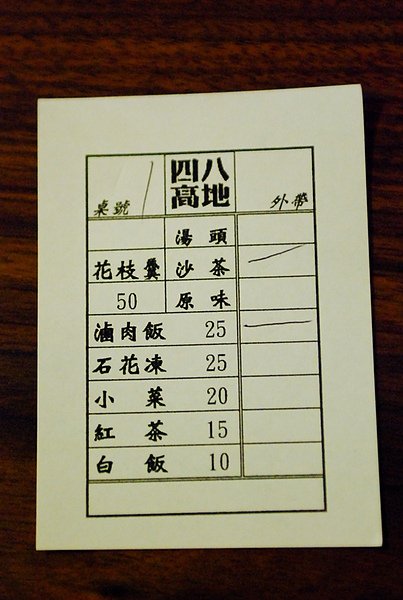 四八
高地
桌號 1
外帶
湯頭
花枝羹 沙茶 一
50 原味
滷肉飯 25 一
石花凍 25
小菜 20
紅茶 15
白飯 10